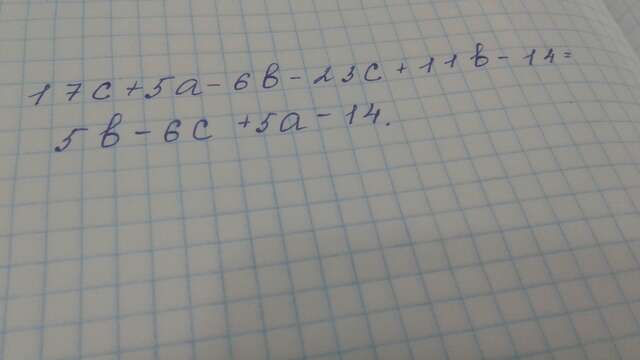 17c+5a-6b-23c+11b-14=
5b-6c+5a-14.